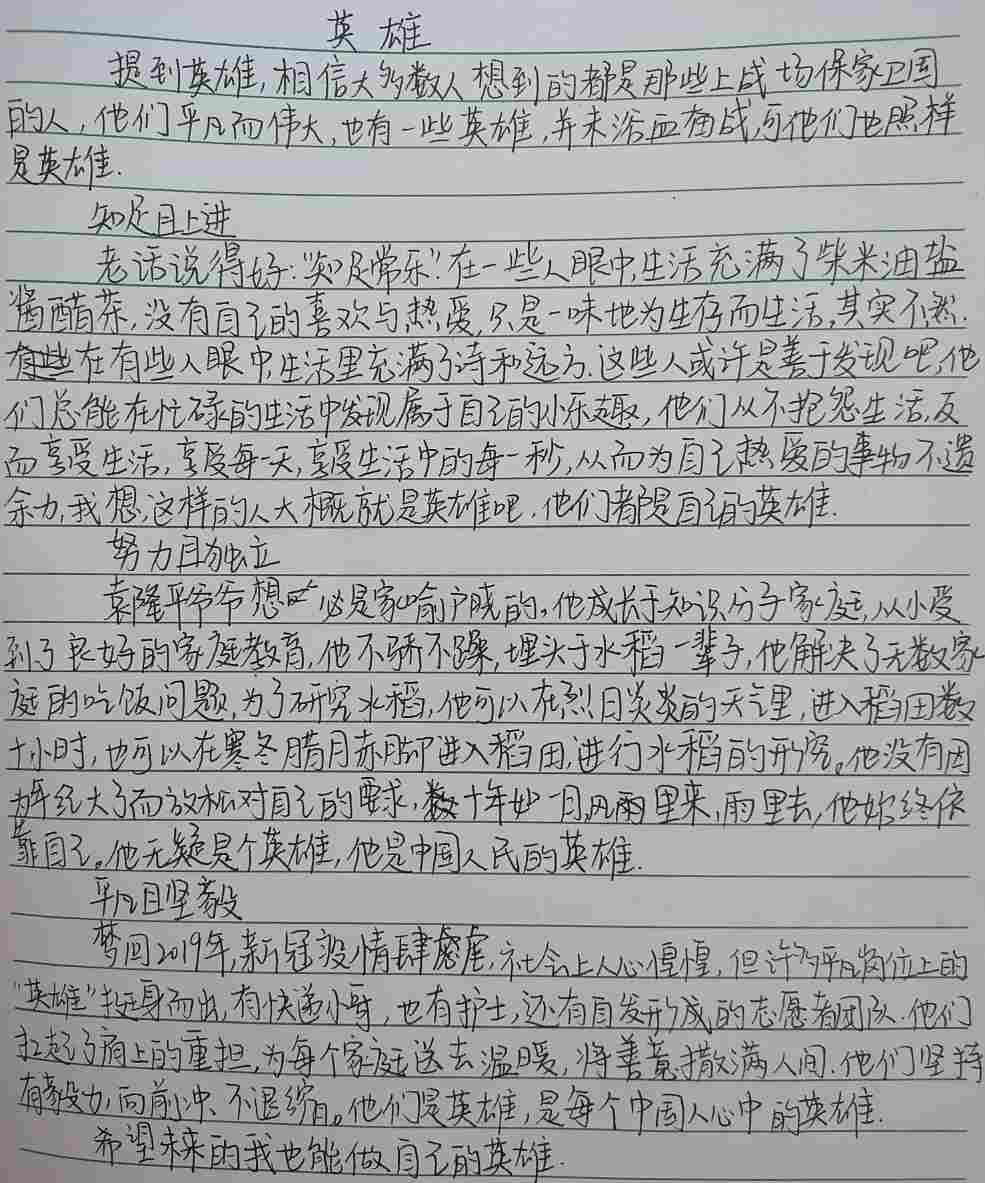 英雄
提到英雄,相信大多数人想到的都是那些上战场保家卫国
的人,他们平凡而伟大,也有一些英雄,并未浴血奋战,可他们也照样
是英雄.
知足且上进
老话说得好:"知足常乐".在一些人眼中,生活充满了柴米油盐
酱醋茶,没有自己的喜欢与热爱,只是一味地为生存而生活,其实不然.
在有些人眼中,生活里充满了诗和远方.这些人或许是善于发现吧,他
们总能在忙碌的生活中发现属于自己的小乐趣,他们从不抱怨生活,反
而享受生活,享受每一天,享受生活中的每一秒,从而为自己热爱的事物不遗
余力,我想,这样的人大概就是英雄吧.他们都是自己的英雄.
努力且独立
袁隆平爷爷想必是家喻户晓的。他成长于知识分子家庭,从小受
到了良好的家庭教育,他不骄不躁,埋头于水稻一辈子,他解决了无数家
庭的吃饭问题,为了研究水稻,他可以在烈日炎炎的天气里,进入稻田数
十小时,也可以在寒冬腊月赤脚进入稻田,进行水稻的研究。他没有因
为年纪大了而放松对自己的要求,数十年如一日,风雨里来,雨里去,他始终依
靠自己。他无疑是个英雄,他是中国人民的英雄.
平凡且坚毅
梦回2019年,新冠疫情肆虐,社会上人心惶惶,但许多平凡岗位上的
"英雄"挺身而出,有快递小哥,也有护士,还有自发形成的志愿者团队.他们
扛起了肩上的重担,为每个家庭送去温暖,将善意撒满人间.他们坚持
有毅力,向前冲、不退缩。他们是英雄,是每个中国人心中的英雄.
希望未来的我也能做自己的英雄.